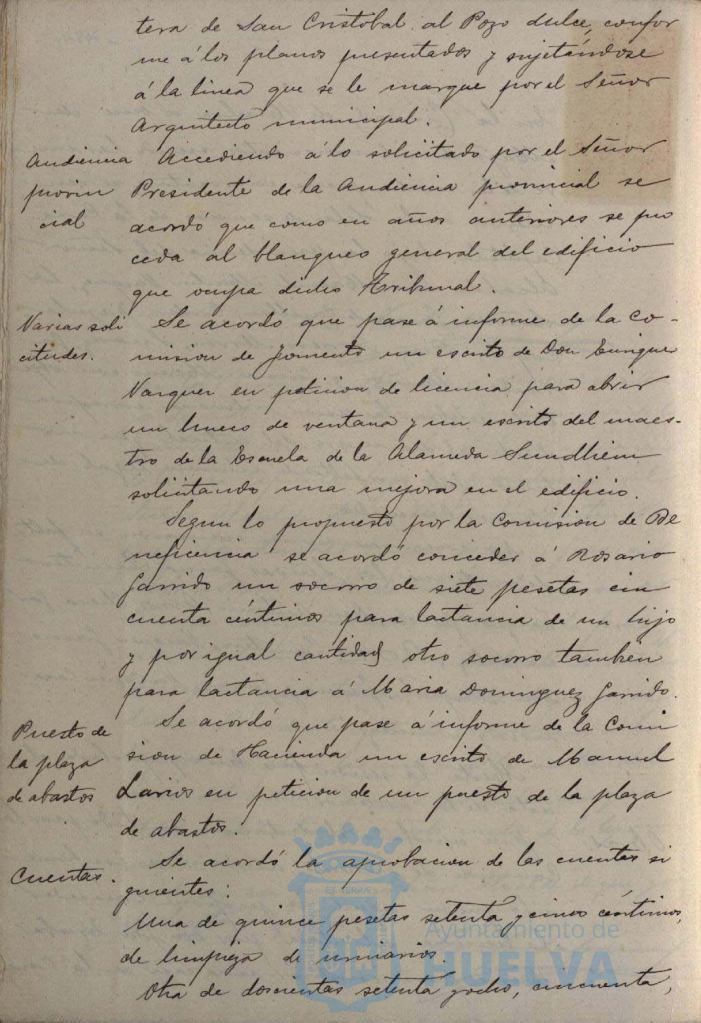 tera de San Cristobal al Pozo dulce, confor
me á los planos presentados y sujetándose
á la linea que se le marque por el Señor
Arquitecto municipal.
Audiencia provin cial
Accediendo á lo solicitado por el Señor
Presidente de la Audiencia provincial se
acordó que como en años anteriores se pro
ceda al blanqueo general del edificio
que ocupa dicho Tribunal.
Varias soli citudes.
Se acordó que pase á informe de la Co-
mision de Fomento un escrito de Don Enrique
Vazquez en peticion de licencia para abrir
un hueco de ventana y un escrito del maes-
tro de la Escuela de la Alameda Sundhiem
solicitando una mejora en el edificio.
Segun lo propuesto por la Comision de Be
neficencia se acordó conceder á Rosario
Garrido un socorro de siete pesetas cin
cuenta céntimos para lactancia de un hijo
y por igual cantidad otro socorro tambien
para lactancia á Maria Dominguez Garrido.
Puesto de la plaza de abastos
Se acordó que pase á informe de la Comi
sion de Hacienda un escrito de Manuel
Larios en peticion de un puesto de la plaza
de abastos.
Cuentas.
Se acordó la aprobacion de las cuentas si
guientes:
Una de quince pesetas setenta y cinco céntimos,
de limpieza de urinarios.
Otra de doscientas setenta y ocho, cincuenta,
Ayuntamiento de
HUELVA